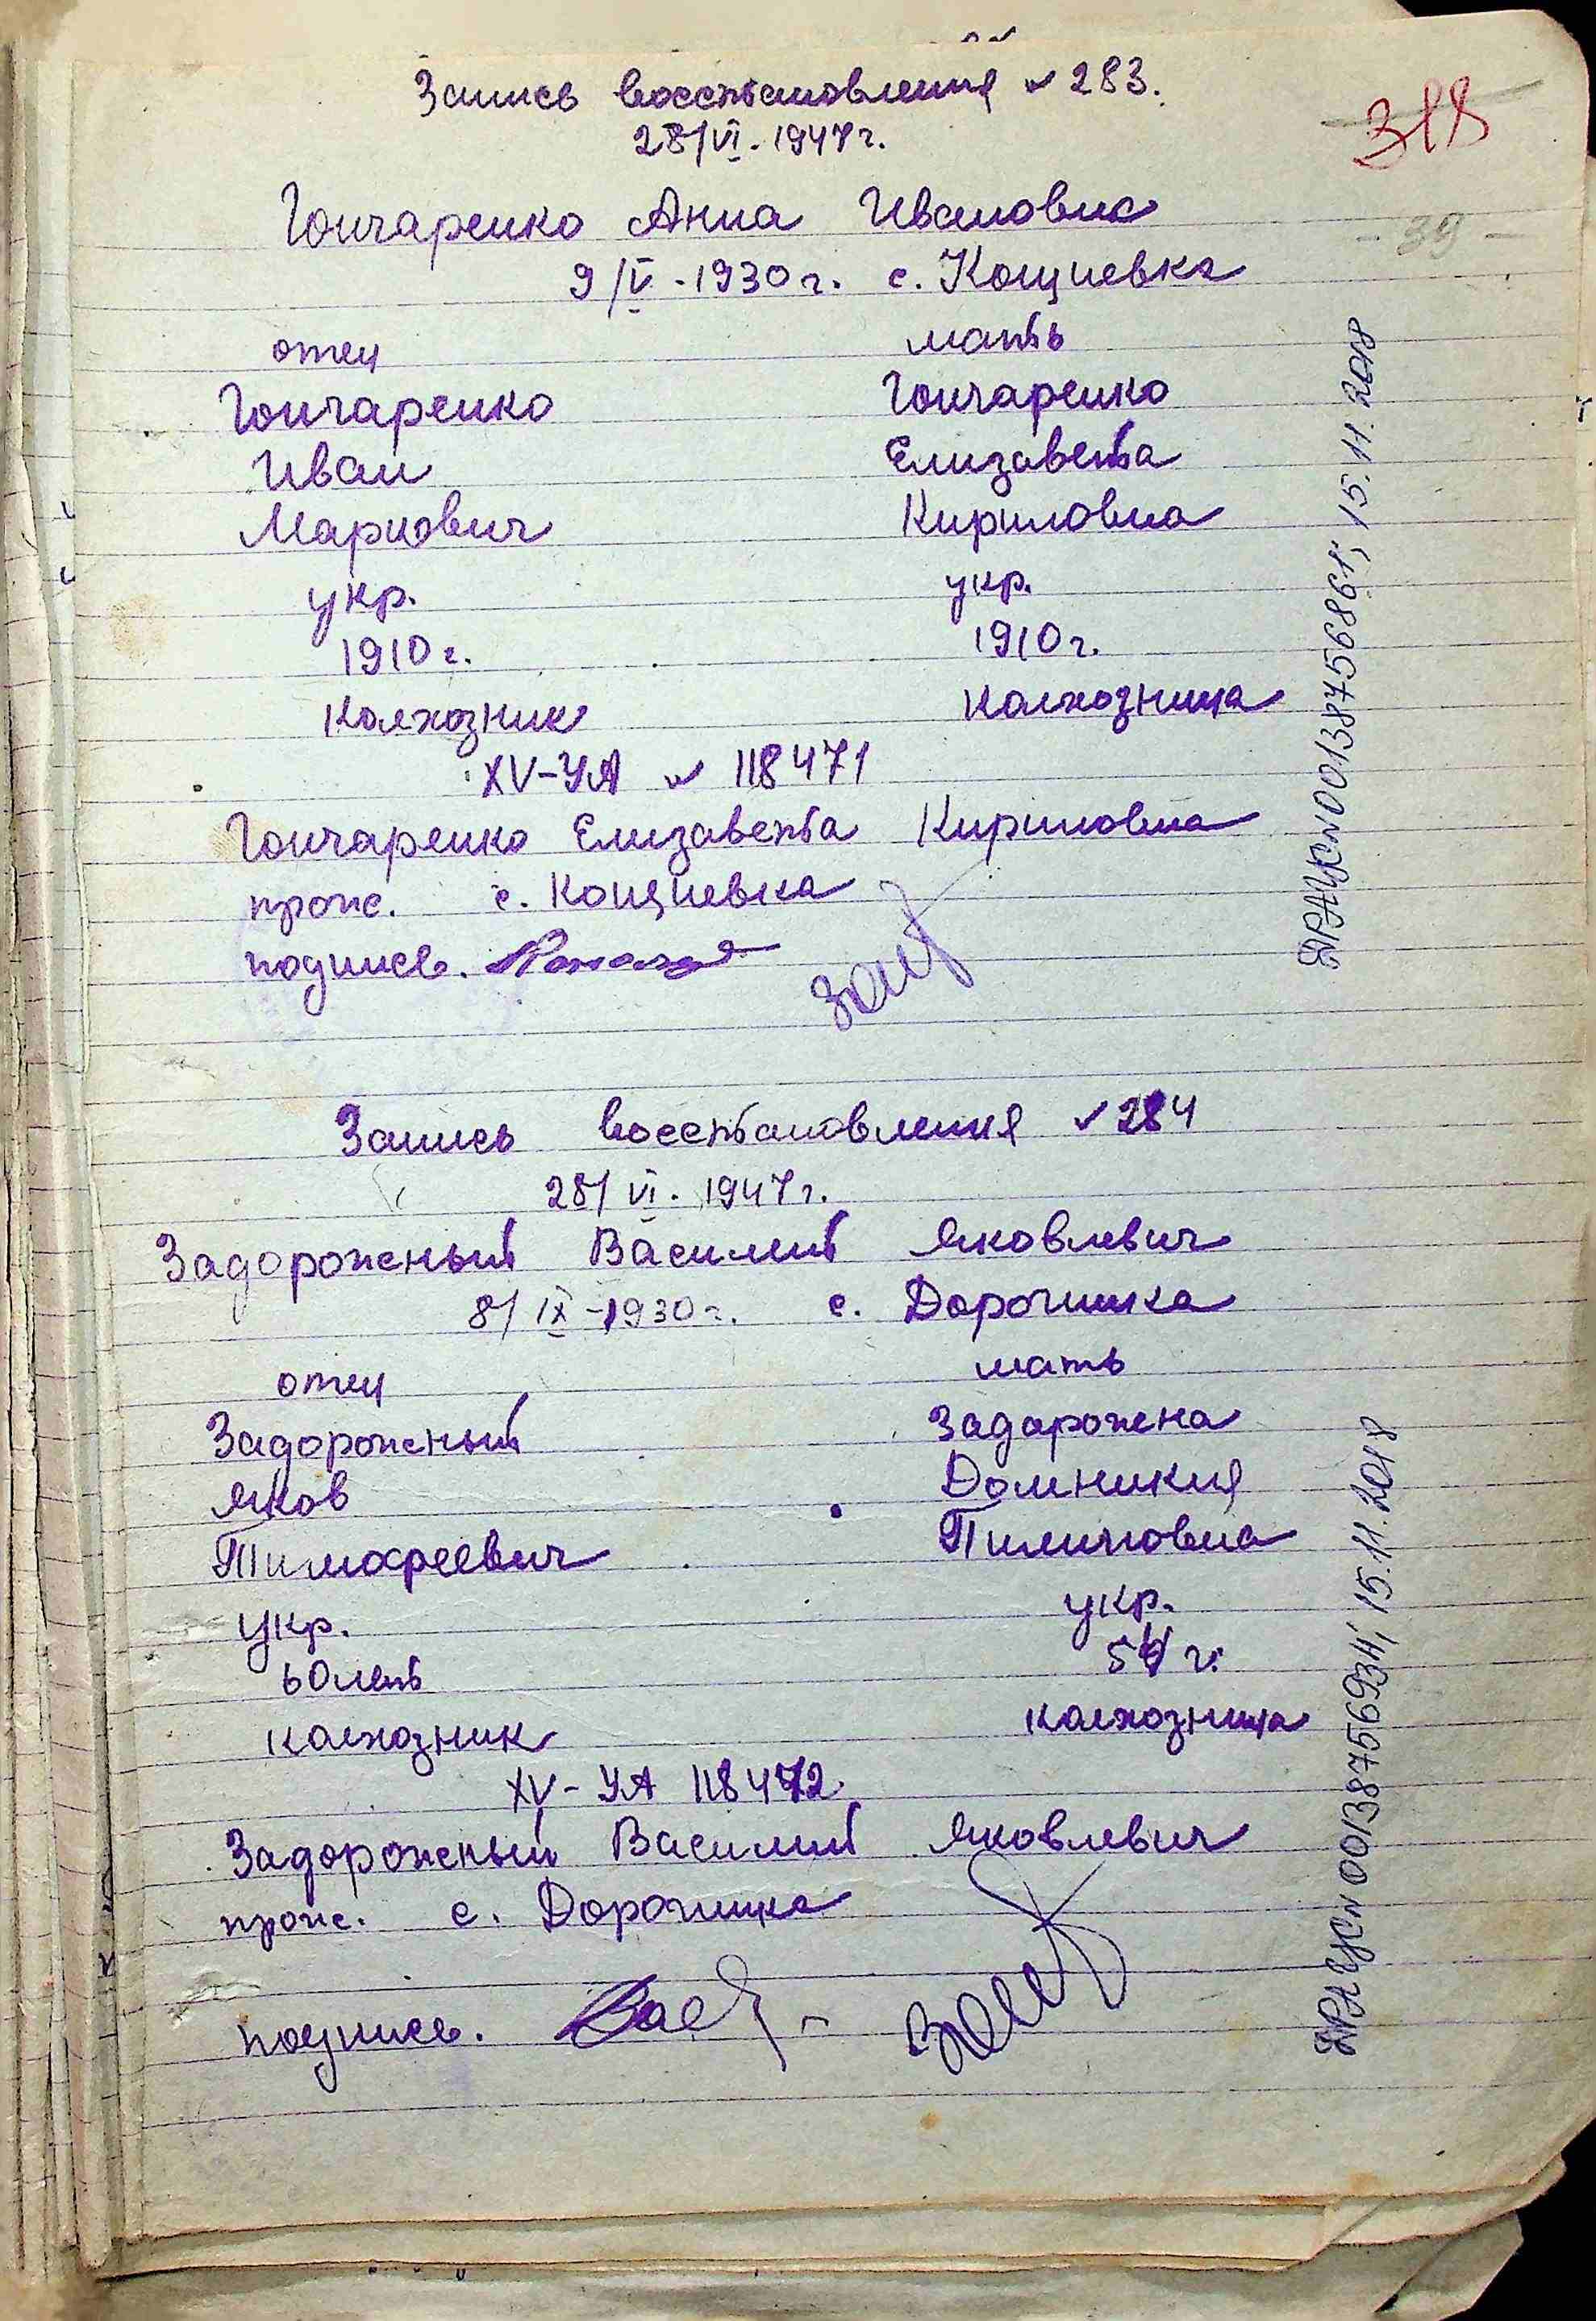 Запись восстановления № 283.
28/VI. 1947г.
318
- 39 -
Гончаренко Анна Ивановна
9/V - 1930г. с. Кощиевка
отец мать
Гончаренко Гончаренко
Иван Елизавета
Маркович Кириловна
укр. укр.
1910г. 1910г.
Колхозник колхозница
XV-УА № 118471
Гончаренко Елизавета Кириловна
прож. с. Кощиевка
подпись.
ДРАЦСN00138756861; 15.11.2018
Запись восстановления № 284
28/VI. 1947г.
Задорожный Василий Яковлевич
8/IX - 1930г. с. Дорогинка
отец мать
Задорожный Задорожна
Яков Домникия
Тимофеевич Пилиповна
укр. укр.
60 лет г.
колхозник колхозница
XV-УА 118472
Задорожный Василий Яковлевич
прож. с. Дорогинка
подпись.
ДРАЦСN00138756934; 15.11.2018